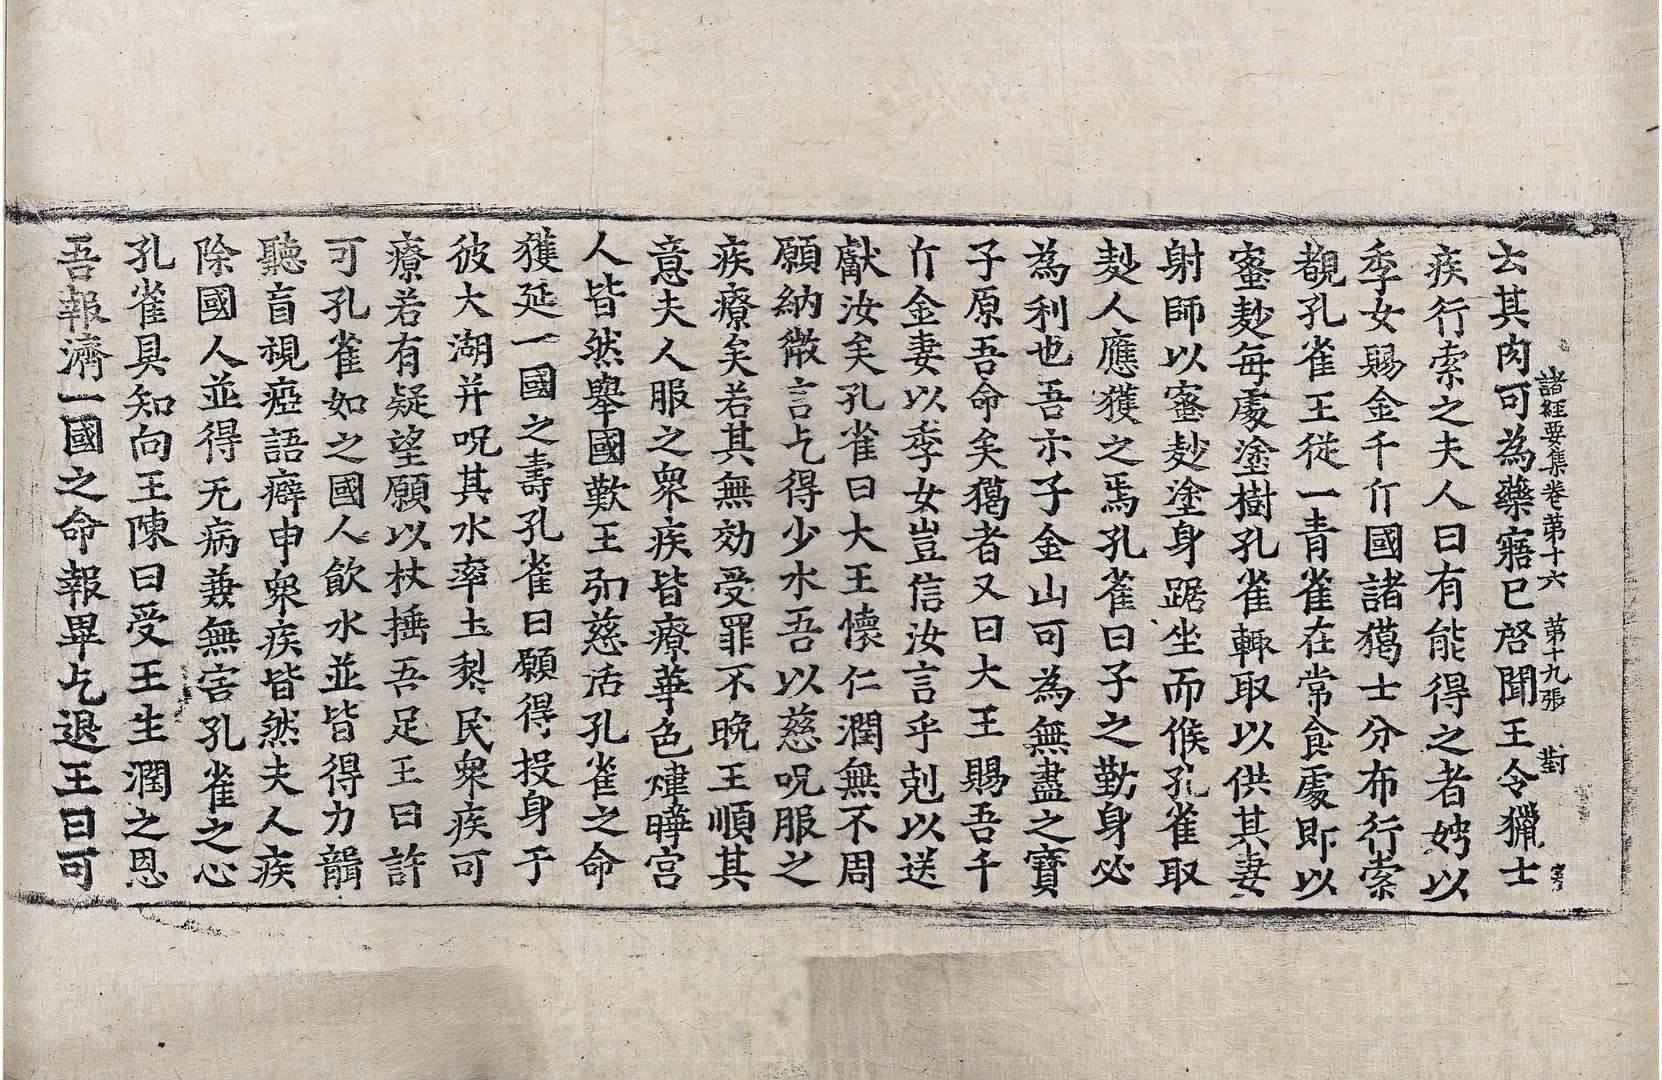 諸経要集卷第十六 第十九張 對
云其肉可為藥寤已啓聞王令獵士
疾行索之夫人曰有能得之者娉以
季女賜金千斤國諸獦士分布行索
覩孔雀王従一青雀在常食䖏即以
蜜麨每䖏塗樹孔雀輙取以供其妻
射師以蜜麨塗身踞坐而候孔雀取
麨人應獲之焉孔雀曰子之勤身必
為利也吾示子金山可為無盡之寶
子原吾命矣獦者又曰大王賜吾千
斤金妻以季女豈信汝言乎剋以送
獻汝矣孔雀曰大王懷仁潤無不周
願納微言乞得少水吾以慈呪服之
疾療矣若其無効受罪不晚王順其
意夫人服之衆疾皆療華色煒曄宮
人皆然舉國歎王弘慈活孔雀之命
獲延一國之壽孔雀曰願得投身于
彼大湖并呪其水率土黎民衆疾可
療若有疑望願以杖捶吾足王曰許
可孔雀如之國人飲水並皆得力聾
聽盲視瘂語癖申衆疾皆然夫人疾
除國人並得无病兼無害孔雀之心
孔雀具知向王陳曰受王生潤之恩
吾報濟一國之命報畢乞退王曰可